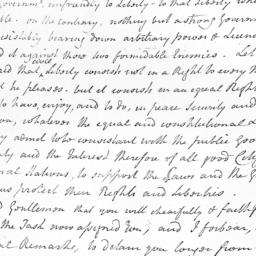 Governmt. unfriendly to Liberty - to that Liberty
on the contrary, nothing but a strong Governm
bearing down arbitrary power & Licen
it against those two formidable Enemies. Let
and that civil Liberty consists not in a Right to every M
he pleases. but it consists in an equal Right
to have, enjoy, and to do, in peace Security and
whatever the equal and constitutional L
admit to be consistent with the public Goo
and the Interest therefore of all good Citiz
Stations, to support the Laws and the G
protect their Rights and Liberties.
Gentlemen that you will chearfully & faithf
the Task now assigned You, and I forbear,
Remarks, to detain you longer from